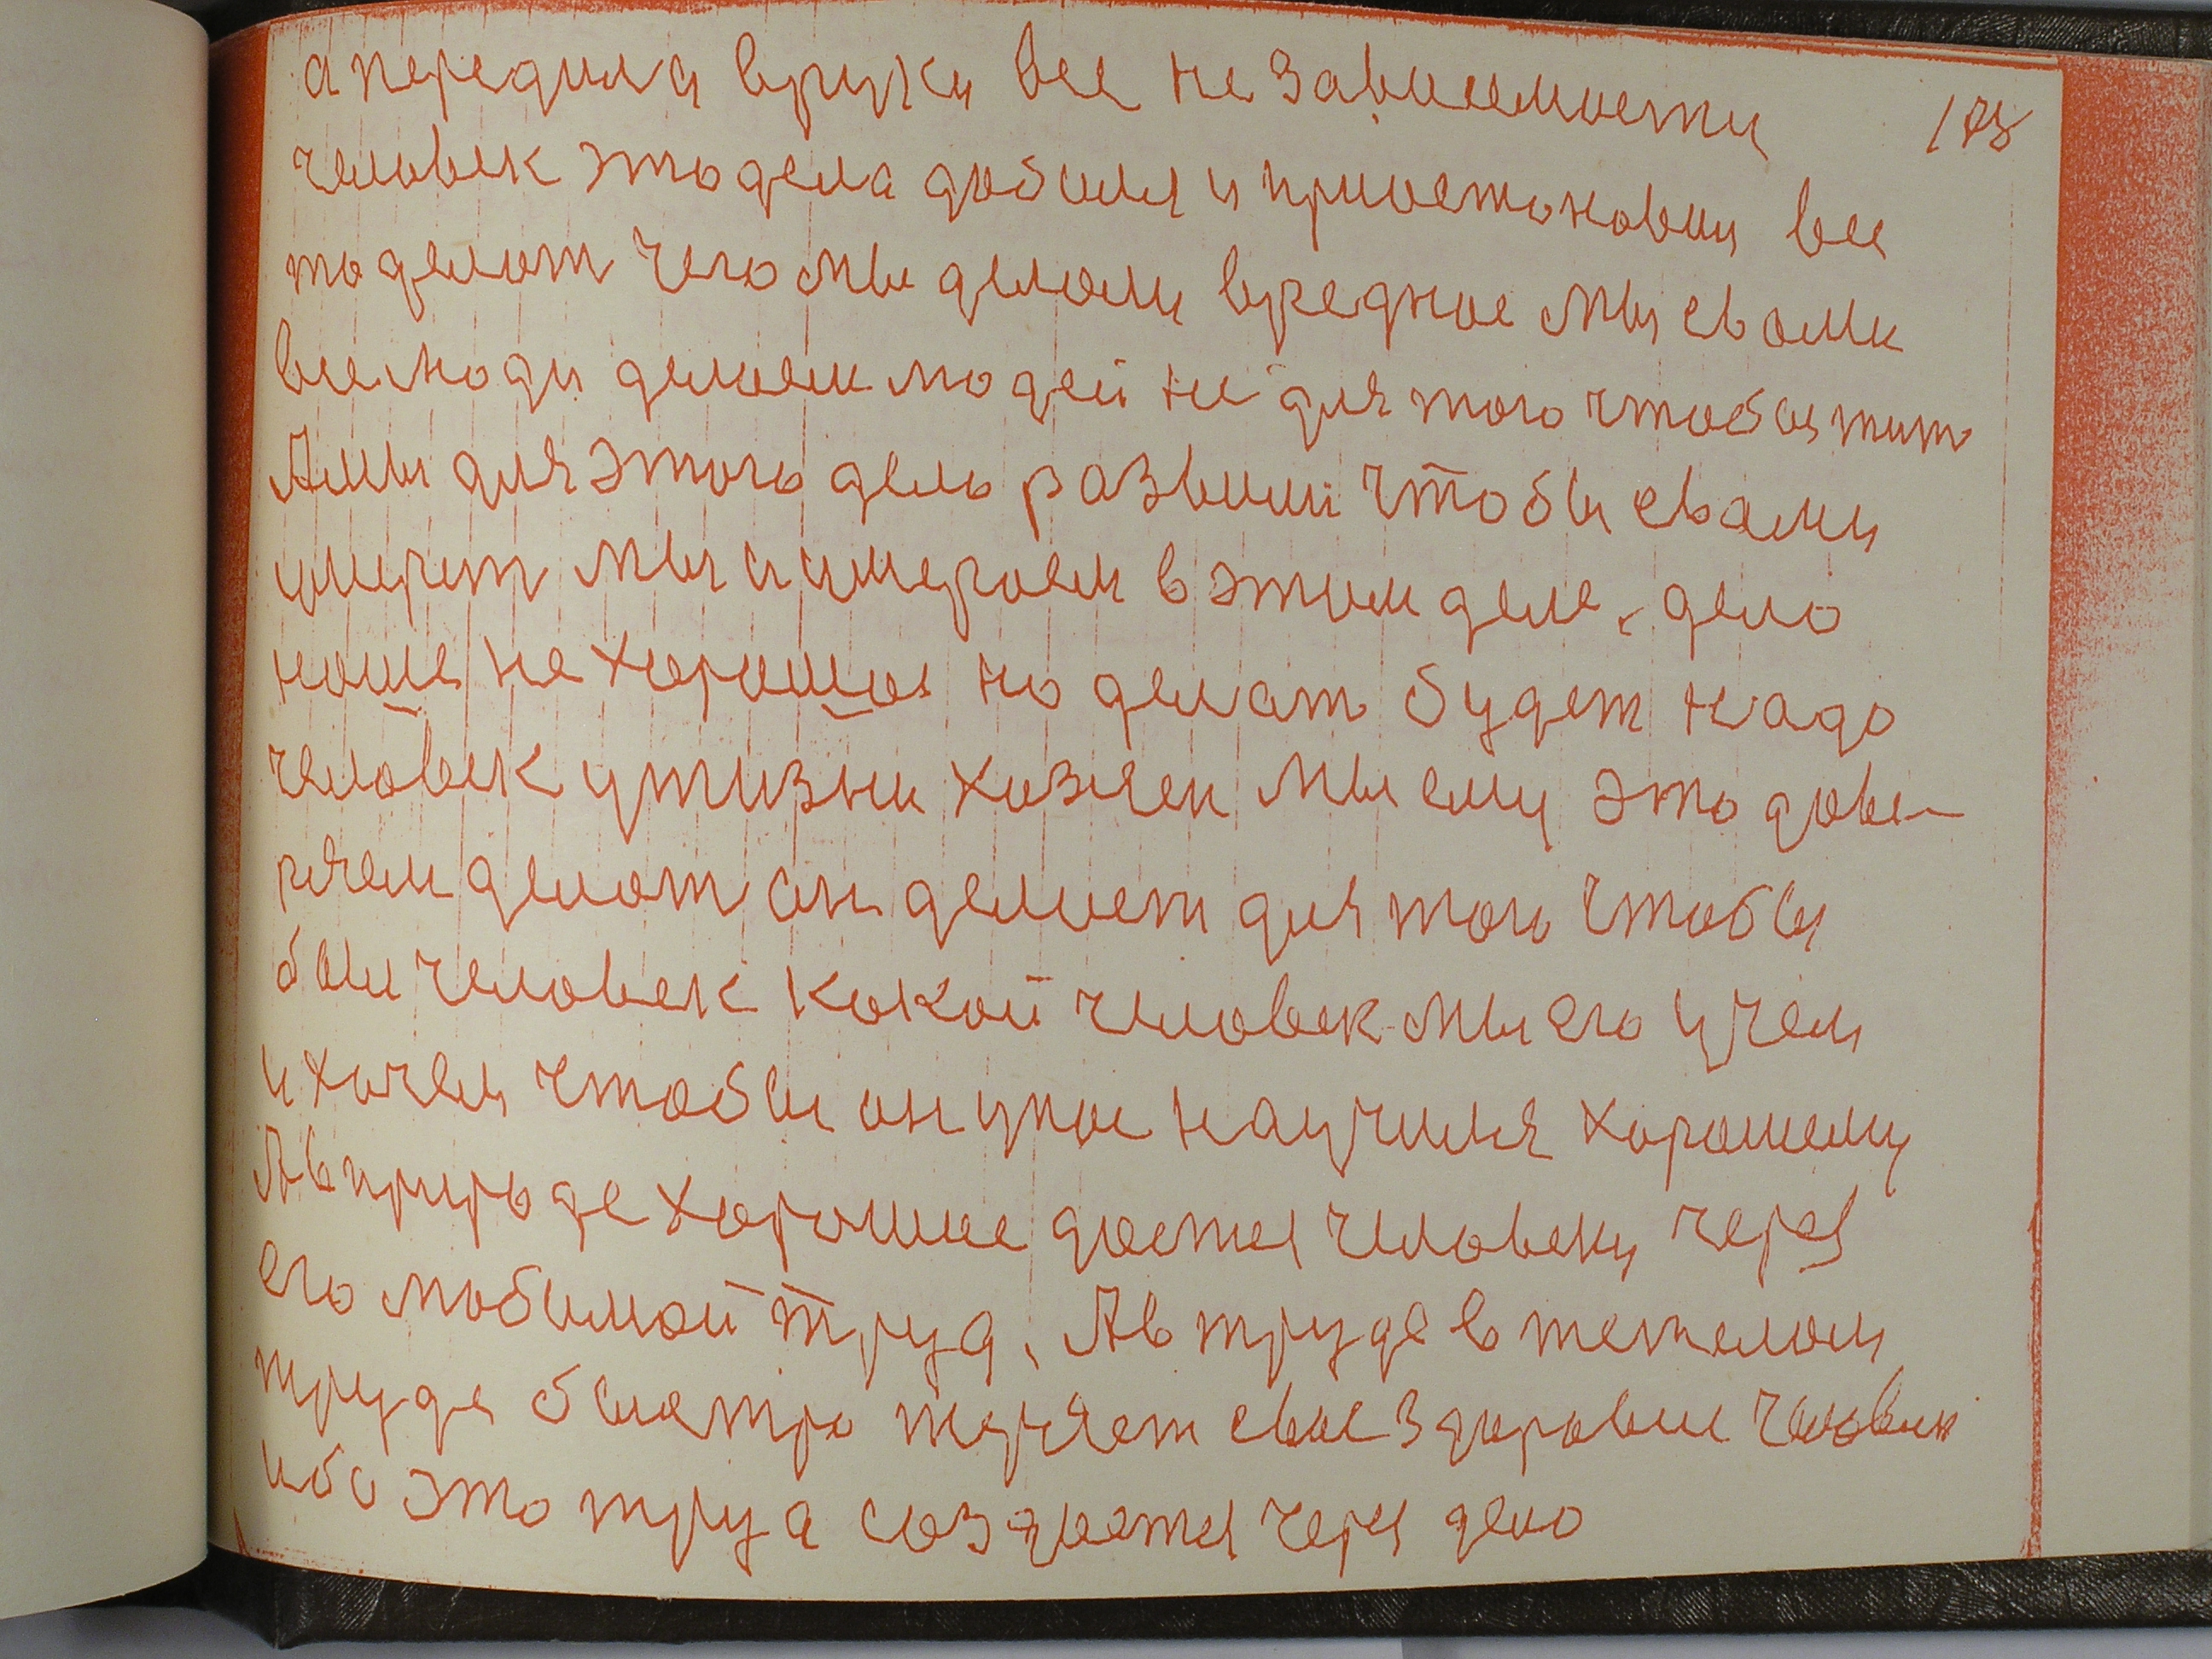 а передил и вруки все не зависемости 178
человек это дела добился и приостоновил все
то делат чего мы делали вредное мы с вами
все люди делаем людей не для того чтобы жит
А мы для этого дело развили чтобы с вами
умерет мы и умераем в этим деле, дело
наше не хорошое но делат будет надо
человек ужизни хозяен мы ему это дове-
ряем делат он делает для того чтобы
был человек какой человек мы его учем
и хочем чтобы он у нас научился хорошему
А в природе хорошее дается человеку через
его любимой труд, А в труде в тежелом
труде быстро теряет свое здоровие человек
ибо это труд создается через дело